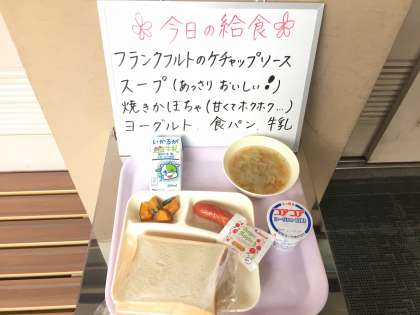 今日の給食
フランクフルトのケチャップソース
スープ(あっさりおいしい!)
焼きかぼちゃ(甘くてホクホク…)
ヨーグルト、食パン、牛乳
いかるが
牛乳
コアコア